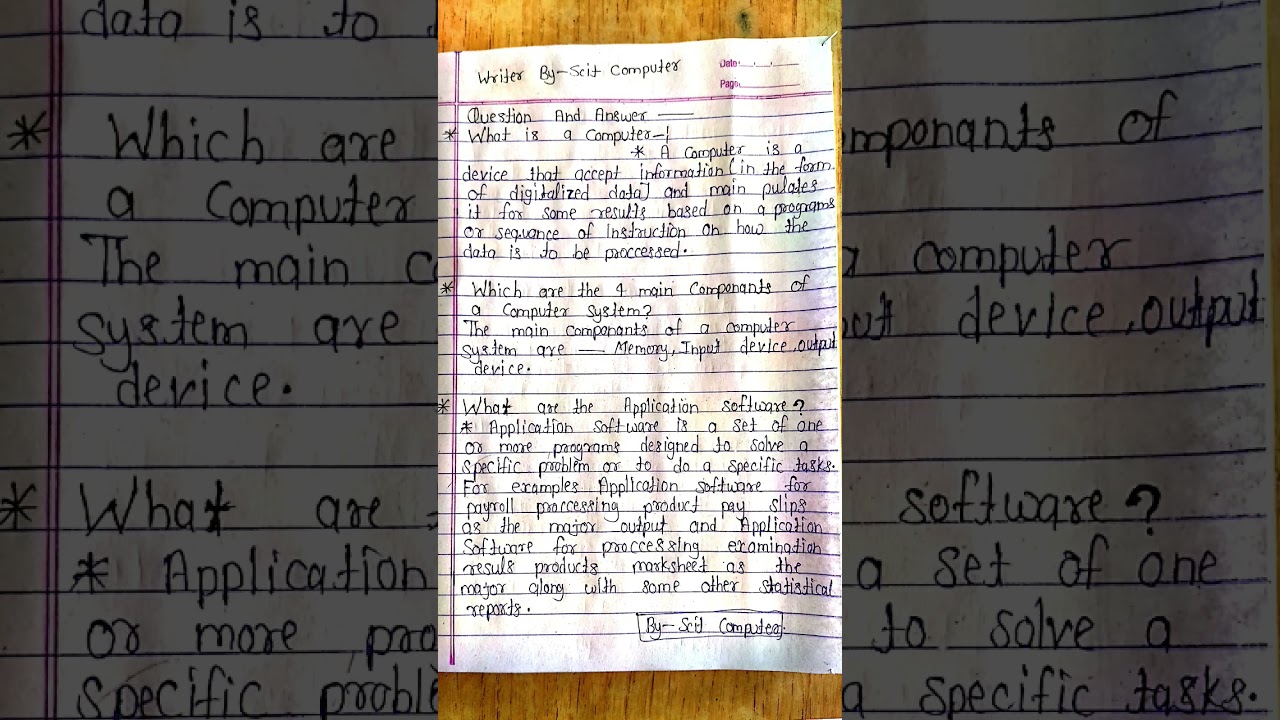 Writer By-Scit Computer
Date:
Page:
Question And Answer —
* What is a Computer-!
* A Computer is a
device that accept information (in the form
of digitalized data) and main pulates
it for some results based on a programs
or sequance of instruction on how the
data is to be proccessed.
* Which are the 4 main Componants of
a Computer System?
The main componants of a computer
system are — Memory, Input device, output
device.
* What are the Application software?
* Application Software is a set of one
or more programs designed to solve a
specific problem or to do a specific tasks.
For examples Application software for
payroll proccessing product pay slips
as the major output and Application
Software for proccessing examination
resuls products marksheet as the
major along with some other statistical
reports.
By- Scit Computer.